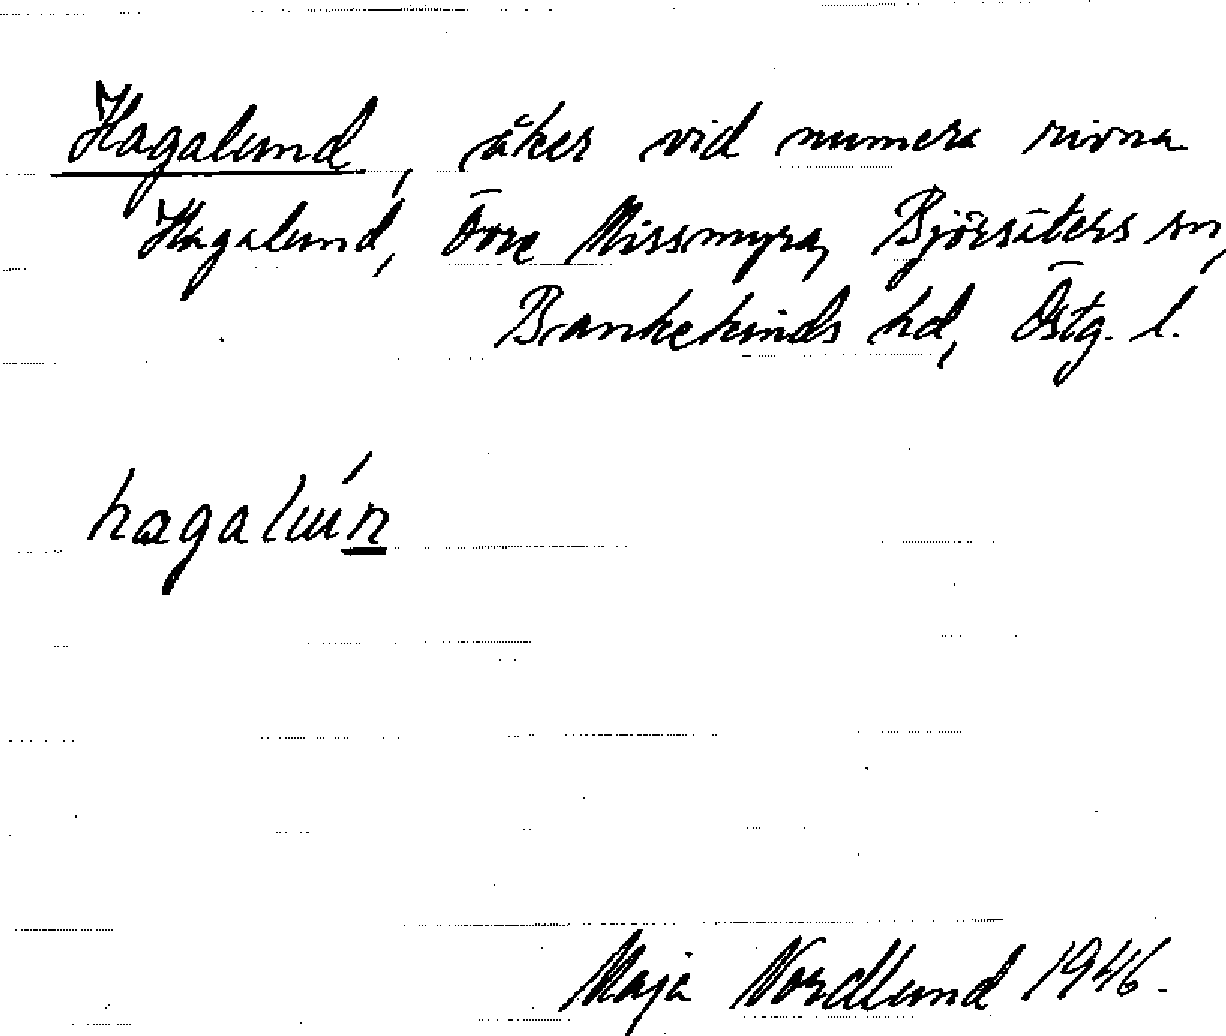 Hagalund, åker vid numera rivna
Hagalund, Övre Missmyra, Björsäters sn,
Bankekinds hd, Östg. l.
hagalún
Maja Nordlund 1946.